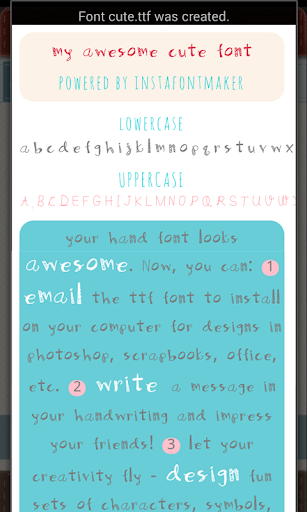 Font cute.ttf was created.
my awesome cute font
POWERED BY INSTAFONTMAKER
LOWERCASE
abcdefghijklmnopqrstuvwx
UPPERCASE
ABCDEFGHIJKLMNOPQRSTUVWX
your hand font looks
awesome. Now, you can: 1
email the ttf font to install
on your computer for designs in
photoshop, scrapbooks, office,
etc. 2 write a message in
your handwriting and impress
your friends! 3 let your
creativity fly - design fun
sets of characters, symbols,